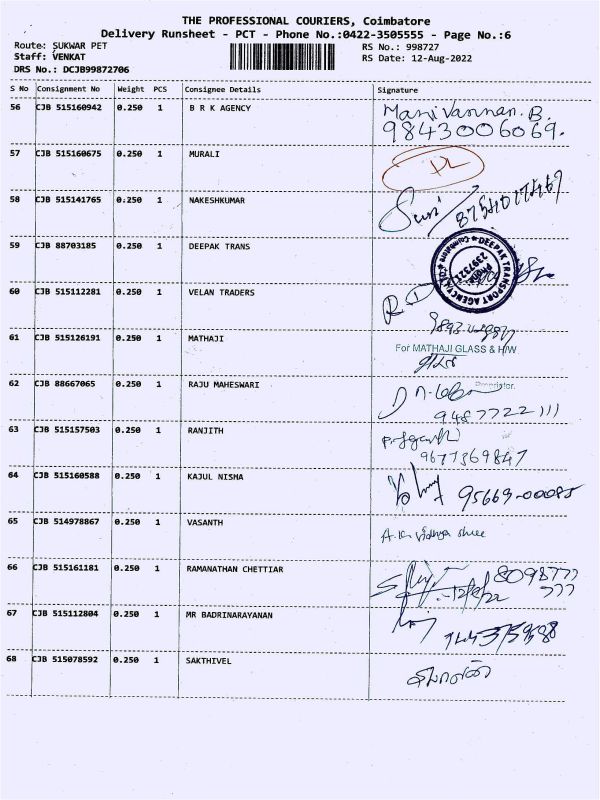 THE PROFESSIONAL COURIERS, Coimbatore
Delivery Runsheet - PCT - Phone No.:0422-3505555 - Page No.:6
Route: SUKWAR PET RS No.: 998727
Staff: VENKAT RS Date: 12-Aug-2022
DRS No.: DCJB99872706
S No Consignment No Weight PCS Consignee Details Signature
56 CJB 515160942 0.250 1 B R K AGENCY Manivannan. B.
9843006069.
57 CJB 515160675 0.250 1 MURALI
58 CJB 515141765 0.250 1 NAKESHKUMAR
59 CJB 88703185 0.250 1 DEEPAK TRANS DEEPAK TRANSPORT AGENCY
Coimbatore
Phone
60 CJB 515112281 0.250 1 VELAN TRADERS
61 CJB 515126191 0.250 1 MATHAJI For MATHAJI GLASS & H/W
62 CJB 88667065 0.250 1 RAJU MAHESWARI Proprietor.
9487722111
63 CJB 515157503 0.250 1 RANJITH
9677369847
64 CJB 515160588 0.250 1 KAJUL NISHA 95669-00085
65 CJB 514978867 0.250 1 VASANTH A.K. Vidhya shree
66 CJB 515161181 0.250 1 RAMANATHAN CHETTIAR 8098777
777
12/8/22
67 CJB 515112804 0.250 1 MR BADRINARAYANAN
68 CJB 515078592 0.250 1 SAKTHIVEL